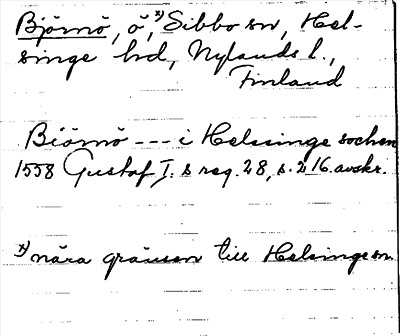 Björnö, ö, x) Sibbo sn, Hel-
singe hd, Nylands l.,
Finland
Biörnö --- i Helssinge sochen
1558 Gustaf I:s reg. 28, s. 216. avskr.
x) nära gränsen till Helsinge sn.